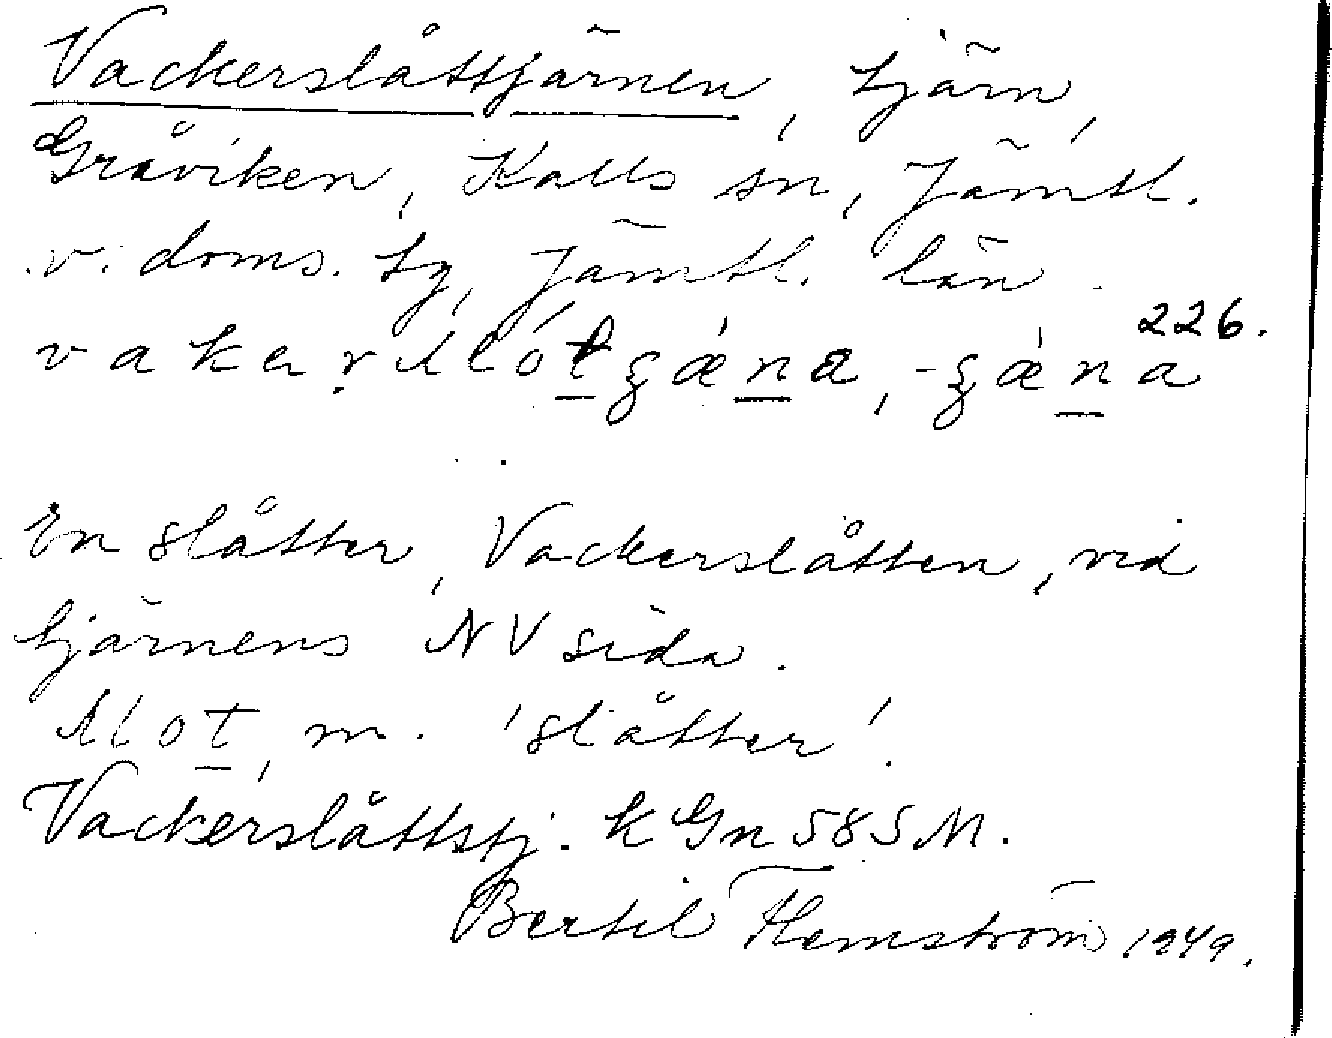 Vackerslåttjärnen, tjärn,
Gråviken, Kalls sn, Jämtl.
v. doms. tg, Jämtl. län.
226.
En slåtter, Vackerslåtten, vid
tjärnens NV sida.
m. 'slåtter'.
Vackerslåttstj. k Gn 58 S M.
Bertil Flemström 1949.